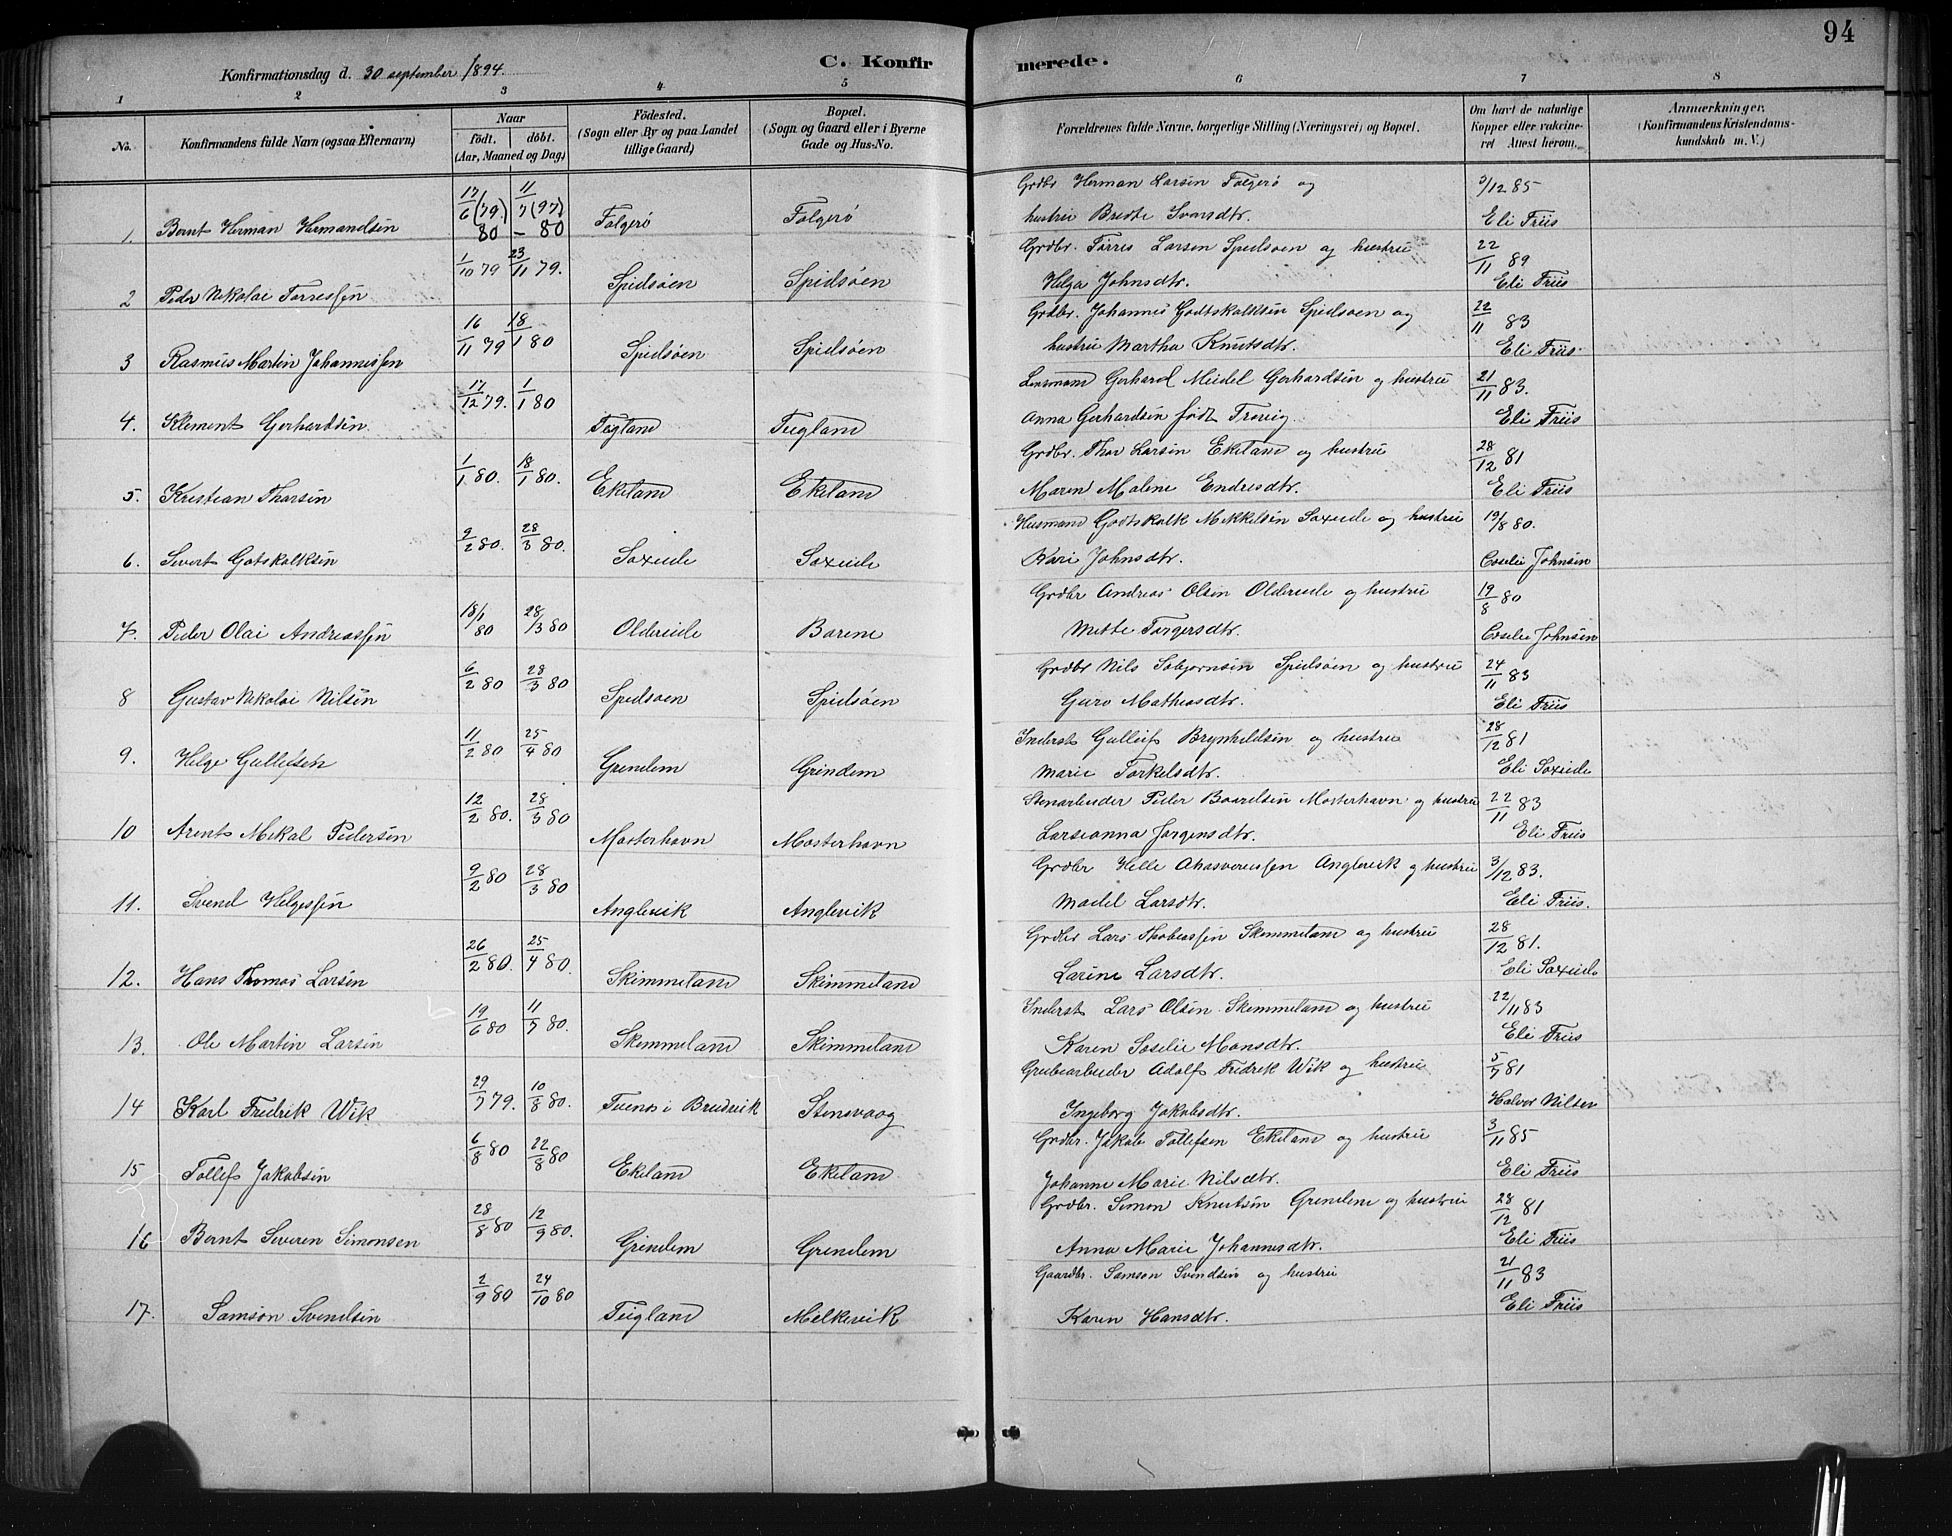 94
Konfirmationsdag d. 30 september 1894.
C. Konfirmerede.
1 2 3 4 5 6 7 8
No.
Konfirmandens fulde Navn (ogsaa Efternavn)
Naar
født. døbt.
(Aar, Maaned og Dag)
Fødested.
(Sogn eller By og paa Landet
tillige Gaard)
Bopæl.
(Sogn og Gaard eller i Byerne
Gade og Hus-No.
Forældrenes fulde Navne, borgerlige Stilling (Næringsvei) og Bopæl.
Om havt de naturlige
Kopper eller vakcine-
ret Attest herom.
Anmærkninger.
(Konfirmandens Kristendoms-
kundskab m. V.)
1. Bernt Herman Hermandsen 17/6 (79.) 80 11/7 (97) - 80 Folgerø Folgerø
Grdbr Herman Larsen Folgerø og 3/12 85
hustru Bredte Svensdtr. Eli Friis
2 Peder Nikolai Torressen 1/10 79 23/11 79. Spidsøen Spidsøen
Grdbr. Torres Larsen Spidsøen og hustru 22/11 89
Helga Johnsdtr. Eli Friis
3 Rasmus Martin Johannessen 16/11 79 18/1 80 Spidsøen Spidsøen
Grdbr. Johannes Godtskalksen Spidsøen og 22/11 83
hustru Martha Knutsdtr. Eli Friis
4. Klement Gerhardsen 17/12 79. 1/1 80 Tegland Teigland
Lensmand Gerhard Meidel Gerhardsen og hustru 21/11 83.
Anna Gerhardsen født Eli Friis
5. Kristian Thorsen 1/1 80. 18/1 80. Ekeland Ekeland
Grdbr. Thor Larsen Ekeland og hustru 28/12 81
Maren Malene Endresdtr. Eli Friis
6. Sivert Gotskalksen 9/2 80. 28/3 80. Soxeide Soxeide
Husmand Godtskalk Mikkelsen Soxeide og hustru 19/8 80.
Kari Johnsdtr. Coselie Johnsen
7. Peder Olai Andreassen 18/1 80 28/3 80 Oldereide Borene
Grdbr Andreas Olsen Oldereide og hustru 19/8 80
Mette Torgersdtr. Coselie Johnsen
8 Gustav Nikolai Nilsen 6/2 80 28/3 80 Spidsøen Spidsøen
Grdbr Nils Sobjørnsen Spidsøen og hustru 24/11 83
Guro Mathiasdtr. Eli Friis
9. Helge Gullefsen 11/2 80 25/4 80 Grindem Grindem
Inderst Gulleif Brynhildsen og hustru 28/12 81
Marie Torkelsdtr. Eli Soxeide
10 Arent Mikal Pedersen 12/2 80. 28/3 80 Mosterhavn Mosterhavn
Stenarbeider Peder Baardsen Mosterhavn og hustru 22/11 83
Larsianna Jørgensdtr. Eli Friis
11. Svend Helgessen 9/2 80 28/3 80 Anglevik Anglevik
Grdbr Helle Ahasverussen Anglevik og hustru 3/12 83.
Madel Larsdtr. Eli Friis.
12. Hans Thomas Larsen 26/2 80. 25/4 80. Skimmeland Skimmeland
Grdbr Lars Thobiassen Skimmeland og hustru 28/12 81.
Larine Larsdtr. Eli Soxeide
13. Ole Martin Larsen 19/6 80 11/7 80. Skimmeland Skimmeland
Inderst Lars Olsen Skimmeland og hustru 22/11 83
Karen Soselie Monsdtr. Eli Friis
14 Karl Fredrik Wik 29/7 79. 10/8 80. i Bredvik Stensvaag
Grubearbeider Adolf Fredrik Wik og hustru 5/7 81
Ingeborg Jakobsdtr. Halvor Nilsen
15 Tollef Jakobsen 6/8 80 22/8 80 Ekeland Ekeland
Grdbr. Jakob Tollefsen Ekeland og hustru 3/11 85
Johanne Marie Nilsdtr. Eli Friis
16 Bernt Severen Simonsen 28/8 80 12/9 80. Grindem Grindem
Grdbr. Simon Knutsen Grindem og hustru 28/12 81
Anna Marie Johannesdtr. Eli Friis
17. Samson Svendsen 2/9 80 24/10 80 Teigland Melkevik
Gaardbr. Samson Svendsen og hustru 21/11 83
Karen Hansdtr. Eli Friis